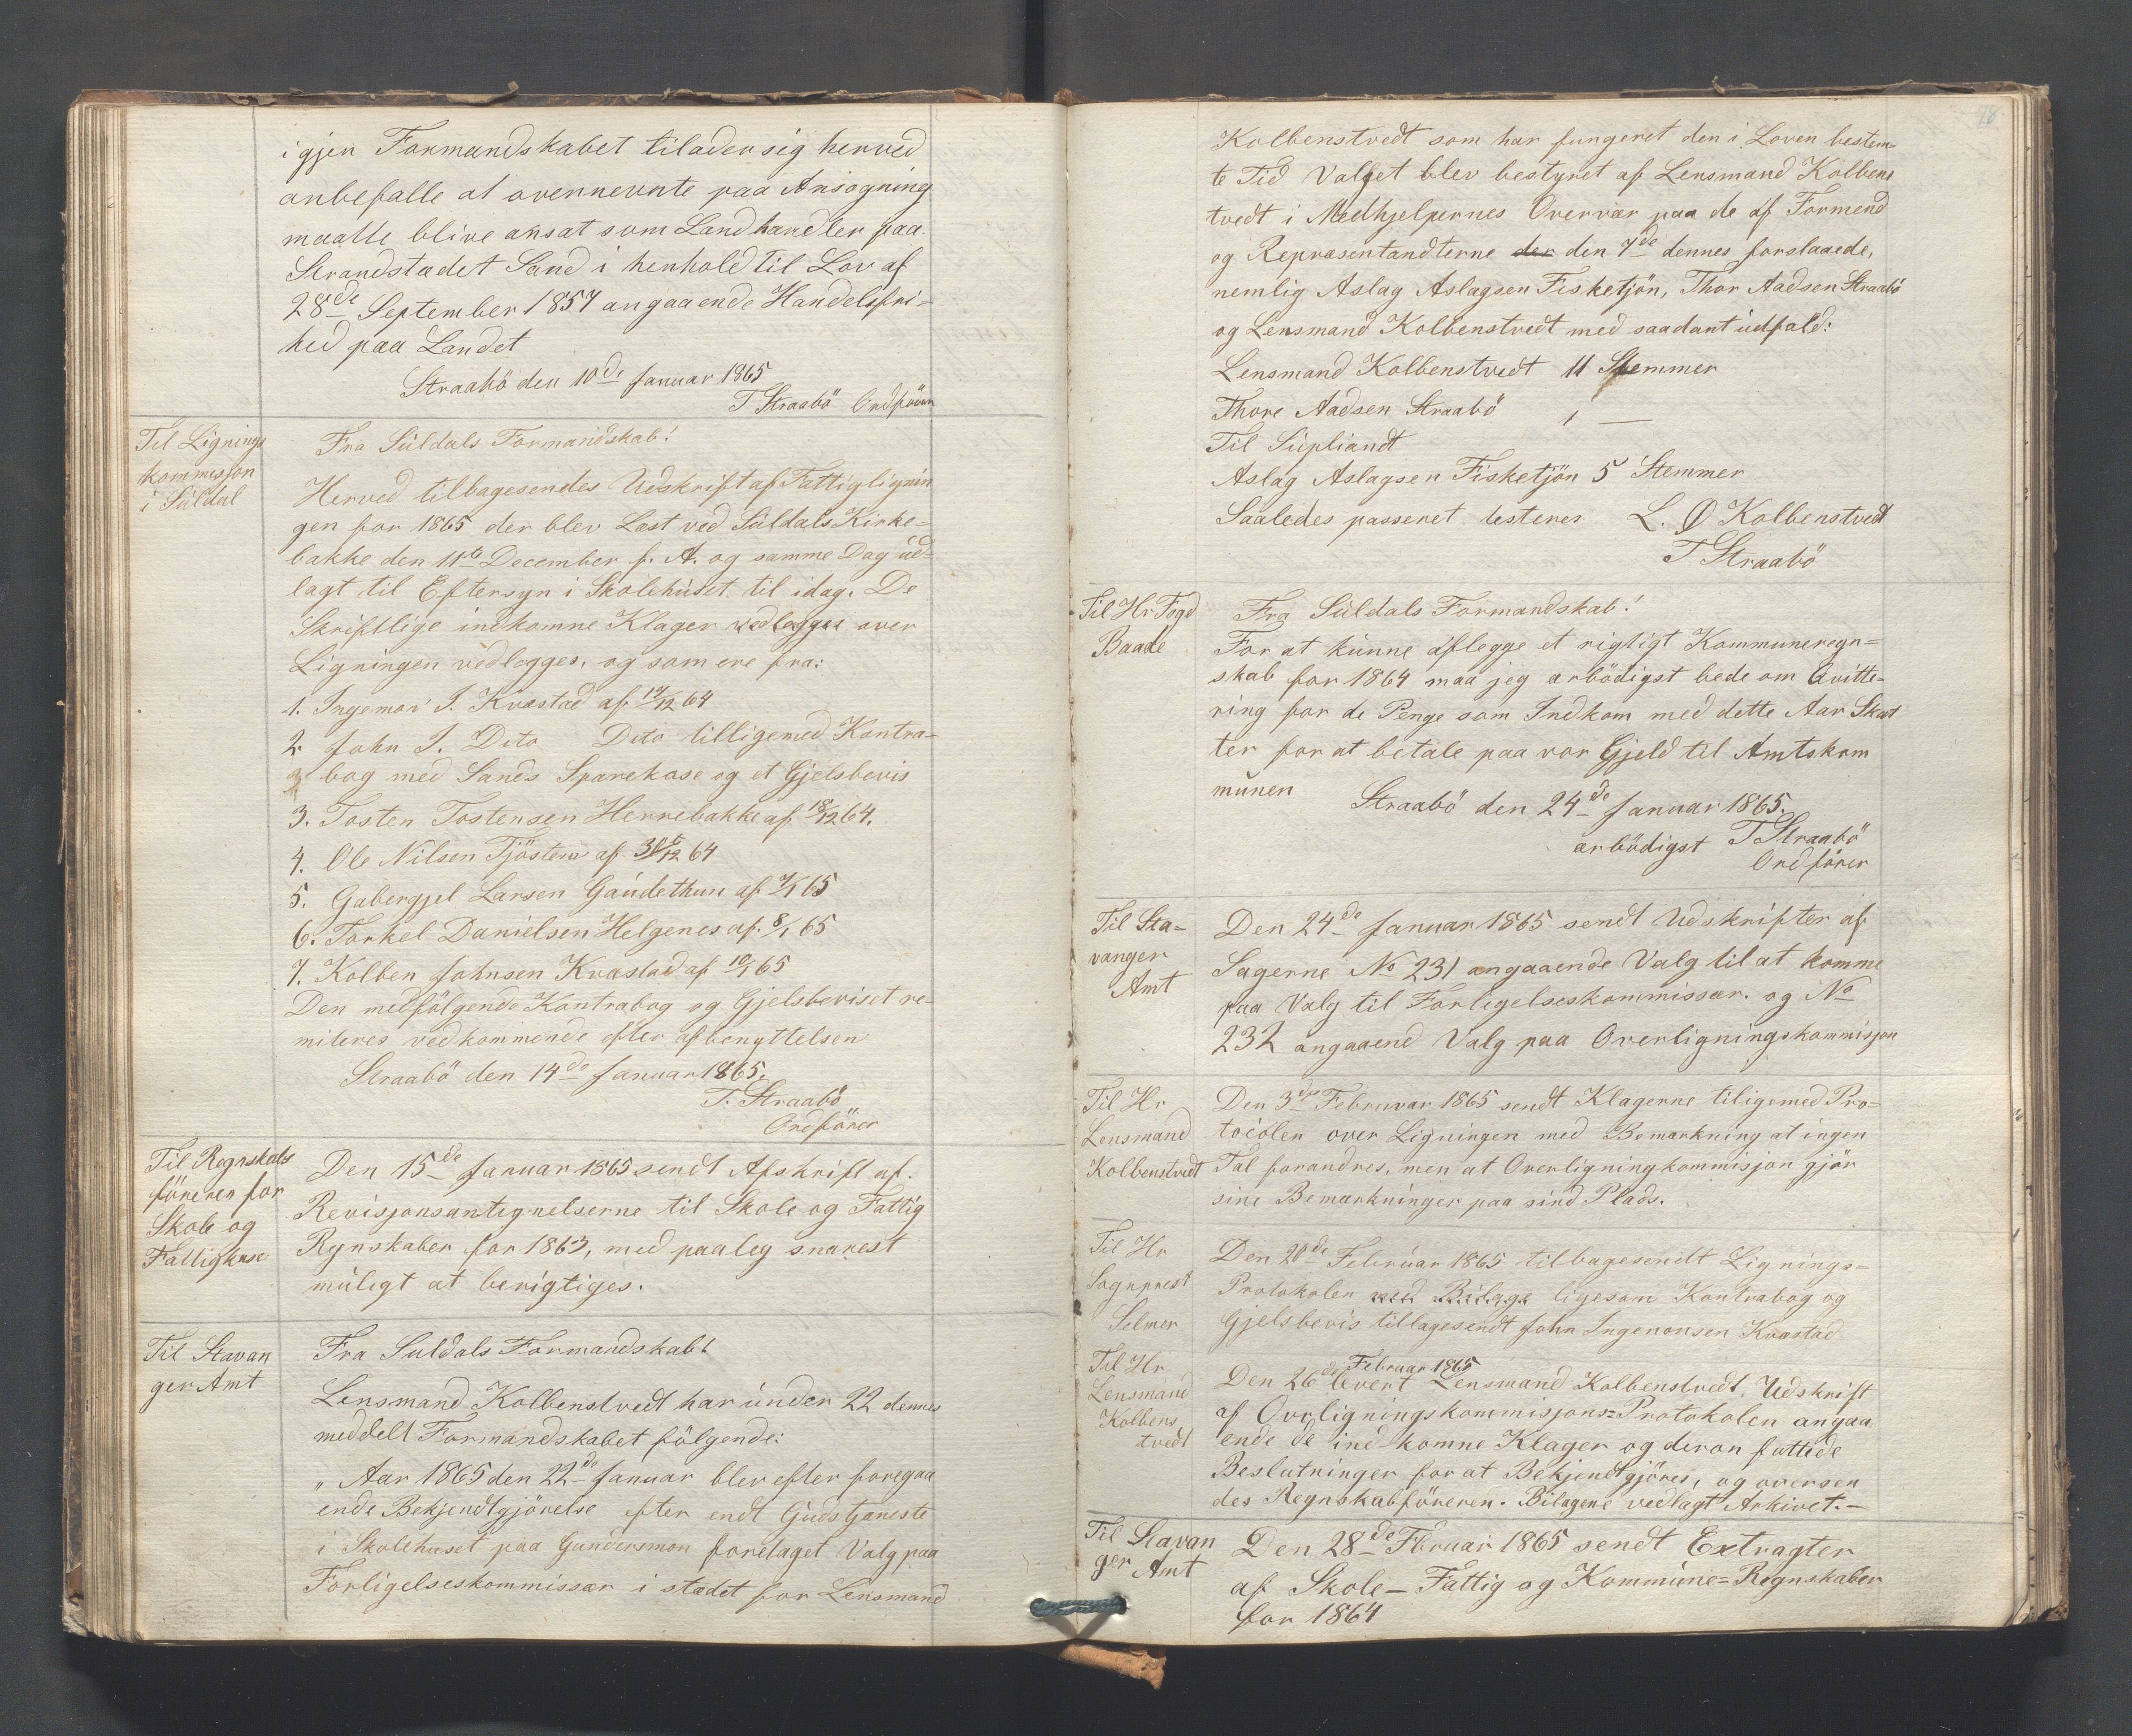 igjen Formandskabet tilader sig herved
anbefalle at overnevnte paa Ansøgning
maatte blive ansat som Landhandler paa
Strandstædet Sand i henhold til Lov af
28de September 1857 angaaende Handelsfri-
hed paa Landet
Straabö den 10de Januar 1865
T Straabö Ordförer
Til Lignings
kommisjon
i Süldal
Fra Süldals Formandskab!
Herved tilbagesendes Udskrift af Fattiglignin
gen for 1865 der blev Læst ved Süldals Kirke-
bakke den 11te December f. A. og samme Dag ud-
lagt til Eftersyn i Skolehüset til idag. De
Skriftlige indkomne Klager vedlegges over
Ligningen vedlegges, og som ere fra:
1. Ingemor J. Kvæstad af 14/12 64
2. John I. Dito Dito tilligemed Kontra-
bog med Sands Sparekase og et Gjelsbevis
3. Tosten Tostensen Herrebakke af 18/12 64.
4. Ole Nilsen Tjöstem af 31/12 64
5. Gabergjel Larsen Gaudethun af 7/1 65
6. Torkel Danielsen Helgenes af 8/1 65
7. Kolben Johnsen Kvæstad af 10/1 65
Den medfölgende Kontrabog og Gjelsbeviset re-
miteres vedkommende efter afbenyttelsen
Straabö den 14de Januar 1865.
T. Straabö
Ordförer
Til Regnskabs
föreren for
Skole og
Fattigkase
Den 15de Januar 1865 sendt Afskrift af
Revisjonsantegnelserne til Skole og Fattig
Regnskaber for 1863, med paaleg snarest
müligt at berigtiges.
Til Stavan
ger Amt
Fra Suldals Formandskab!
Lensmand Kolbenstvedt har ünder 22 dennes
meddelt Formandskabet fölgende:
„ Aar 1865 den 22de Januar blev efter foregaa
ende Bekjendtgjörelse efter endt Gudstjaneste
i Skolehuset paa Gundersmon foretaget Valg paa
Forligelseskommissær i stædet for Lensmand
78
Kolbenstvedt som har fungeret den i Loven bestem-
te Tid Valget blev bestyret af Lensmand Kolbens
tvedt i Medhjelpernes Overvær paa de af Formend
og Repræsentandterne der den 7de dennes forslaaede,
nemlig Aslag Aslagsen Fisketjön, Thor Aadsen Straabö
og Lensmand Kolbenstvedt med saadant udfald:
Lensmand Kolbenstvedt 11 Stemmer
Thore Aadsen Straabö 1 —
Til Süpliandt
Aslag Aslagsen Fisketjön 5 Stemmer
Saaledes passeret testeres L. Ø Kolbenstvedt
T Straabö
Til Hr Fogd
Baade
Fra Süldals Formandskab!
For at künne aflegge et rigtigt Kommuneregn-
skab for 1864 maa jeg ærbödigst bede om Qvitte-
ring for de Penge som Indkom med dette Aar Skat
ter for at betale paa vor Gjeld til Amtskom
munen
Straabö den 24de Januar 1865.
ærbödigst T Straabö
Ordförer
Til Sta-
vanger
Amt
Den 24de Januar 1865 sendt Udskrifter af
Sagerne No 231 angaaende Valg til at komme
paa Valg til Forligelseskommissær. og No
232 angaaend Valg paa Overligningskommisjon
Til Hr
Lensmand
Kolbenstvedt
Den 3die Februar 1865 sendt Klagerne tiligemed Pro-
tocolen over Ligningen med Bemærkning at ingen
Tal forandres, men at Overligningkommisjon gjör
sine Bemærkninger paa sind Plads.
Til Hr
Sognprest
Selmer
Den 20de Februar 1865 tilbagesendt Lignings-
Protokolen med Bilage ligesom Kontrabog og
Gjelsbevis tillagesendt John Ingemonsen Kvæstad
Til Hr
Lensmand
Kolbens
tvedt
Februar 1865
Den 26de levert Lensmand Kolbenstvedt. Udskrift
af Overligningskommisjons-Protokolen angaa
ende de ind komne Klager og deron fattede
Beslutninger for at Bekjendtgjöres, og oversen
des Regnskabföreren. Bilagene vedlagt Arkivet.-
Til Stavan
ger Amt
Den 28de Fbruar 1865 sendt Extragter
af Skole- Fattig og Kommüne-Regnskaber
for 1864